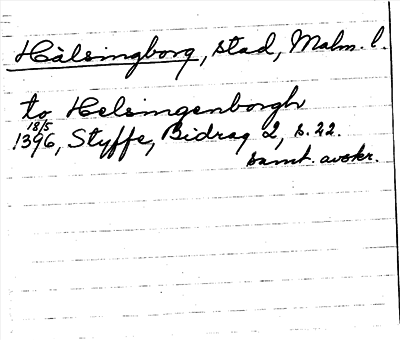 Hälsingborg, stad, Malm. l.
to Helsingenborgh
18/5
1396, Styffe, Bidrag 2, s. 22.
samt. avskr.